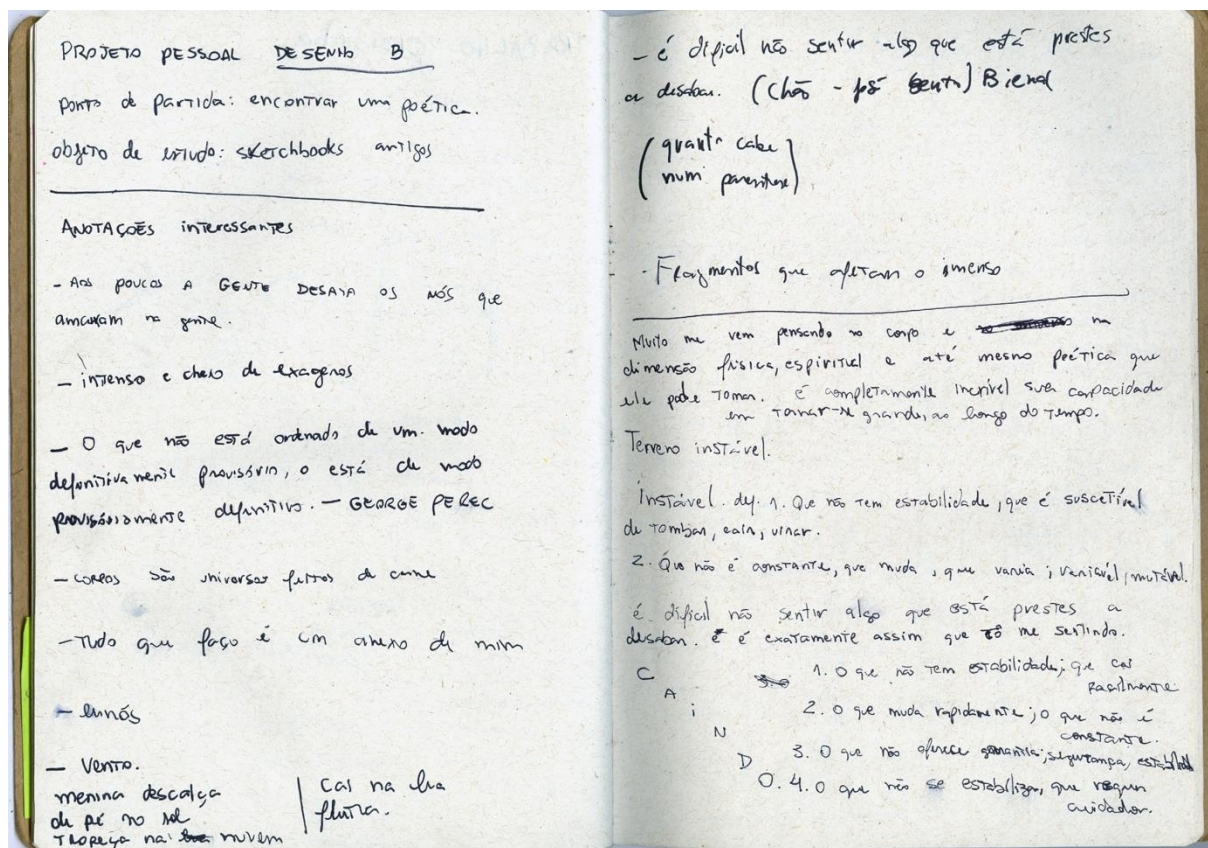 PROJETO PESSOAL DESENHO B
ponto de partida: encontrar uma poética.
objeto de estudo: sketchbooks antigos
ANOTAÇÕES interessantes
- Aos poucos A GENTE DESATA os nós que
amarram na gente.
- intenso e cheio de exageros
- O que não está ordenado de um modo
definitivamente provisório, o está de modo
provisóriamente definitivo. - GEORGE PEREC
- corpos são universos feitos de carne
- Tudo que faço é um anexo de mim
- em nós
- Vento.
menina descalça
de pé no sol
TROPEÇA na nuvem
Cai na lua
flutua.
- é difícil não sentir algo que está prestes
a desabar. (Chão - pós ) Bienal
(quanto cabe
num parentese)
- Fragmentos que afetam o imenso
Muito me vem pensando no corpo e na
dimensão física, espiritual e até mesmo poética que
ele pode tomar. é completamente incrível sua capacidade
em tornar-se grande, ao longo do tempo.
Terreno instável.
Instável. def. 1. Que não tem estabilidade, que é suscetível
de tombar, cair, virar.
2. Que não é constante, que muda, que varia; variável, mutável.
é difícil não sentir algo que está prestes a
desabar. e é exatamente assim que tô me sentindo.
C A i N D O.
1. O que não tem estabilidade; que cai
facilmente
2. O que muda rapidamente; o que não é
constante.
3. O que não oferece garantia, segurança,
4. O que não se estabiliza, que requer
cuidador.